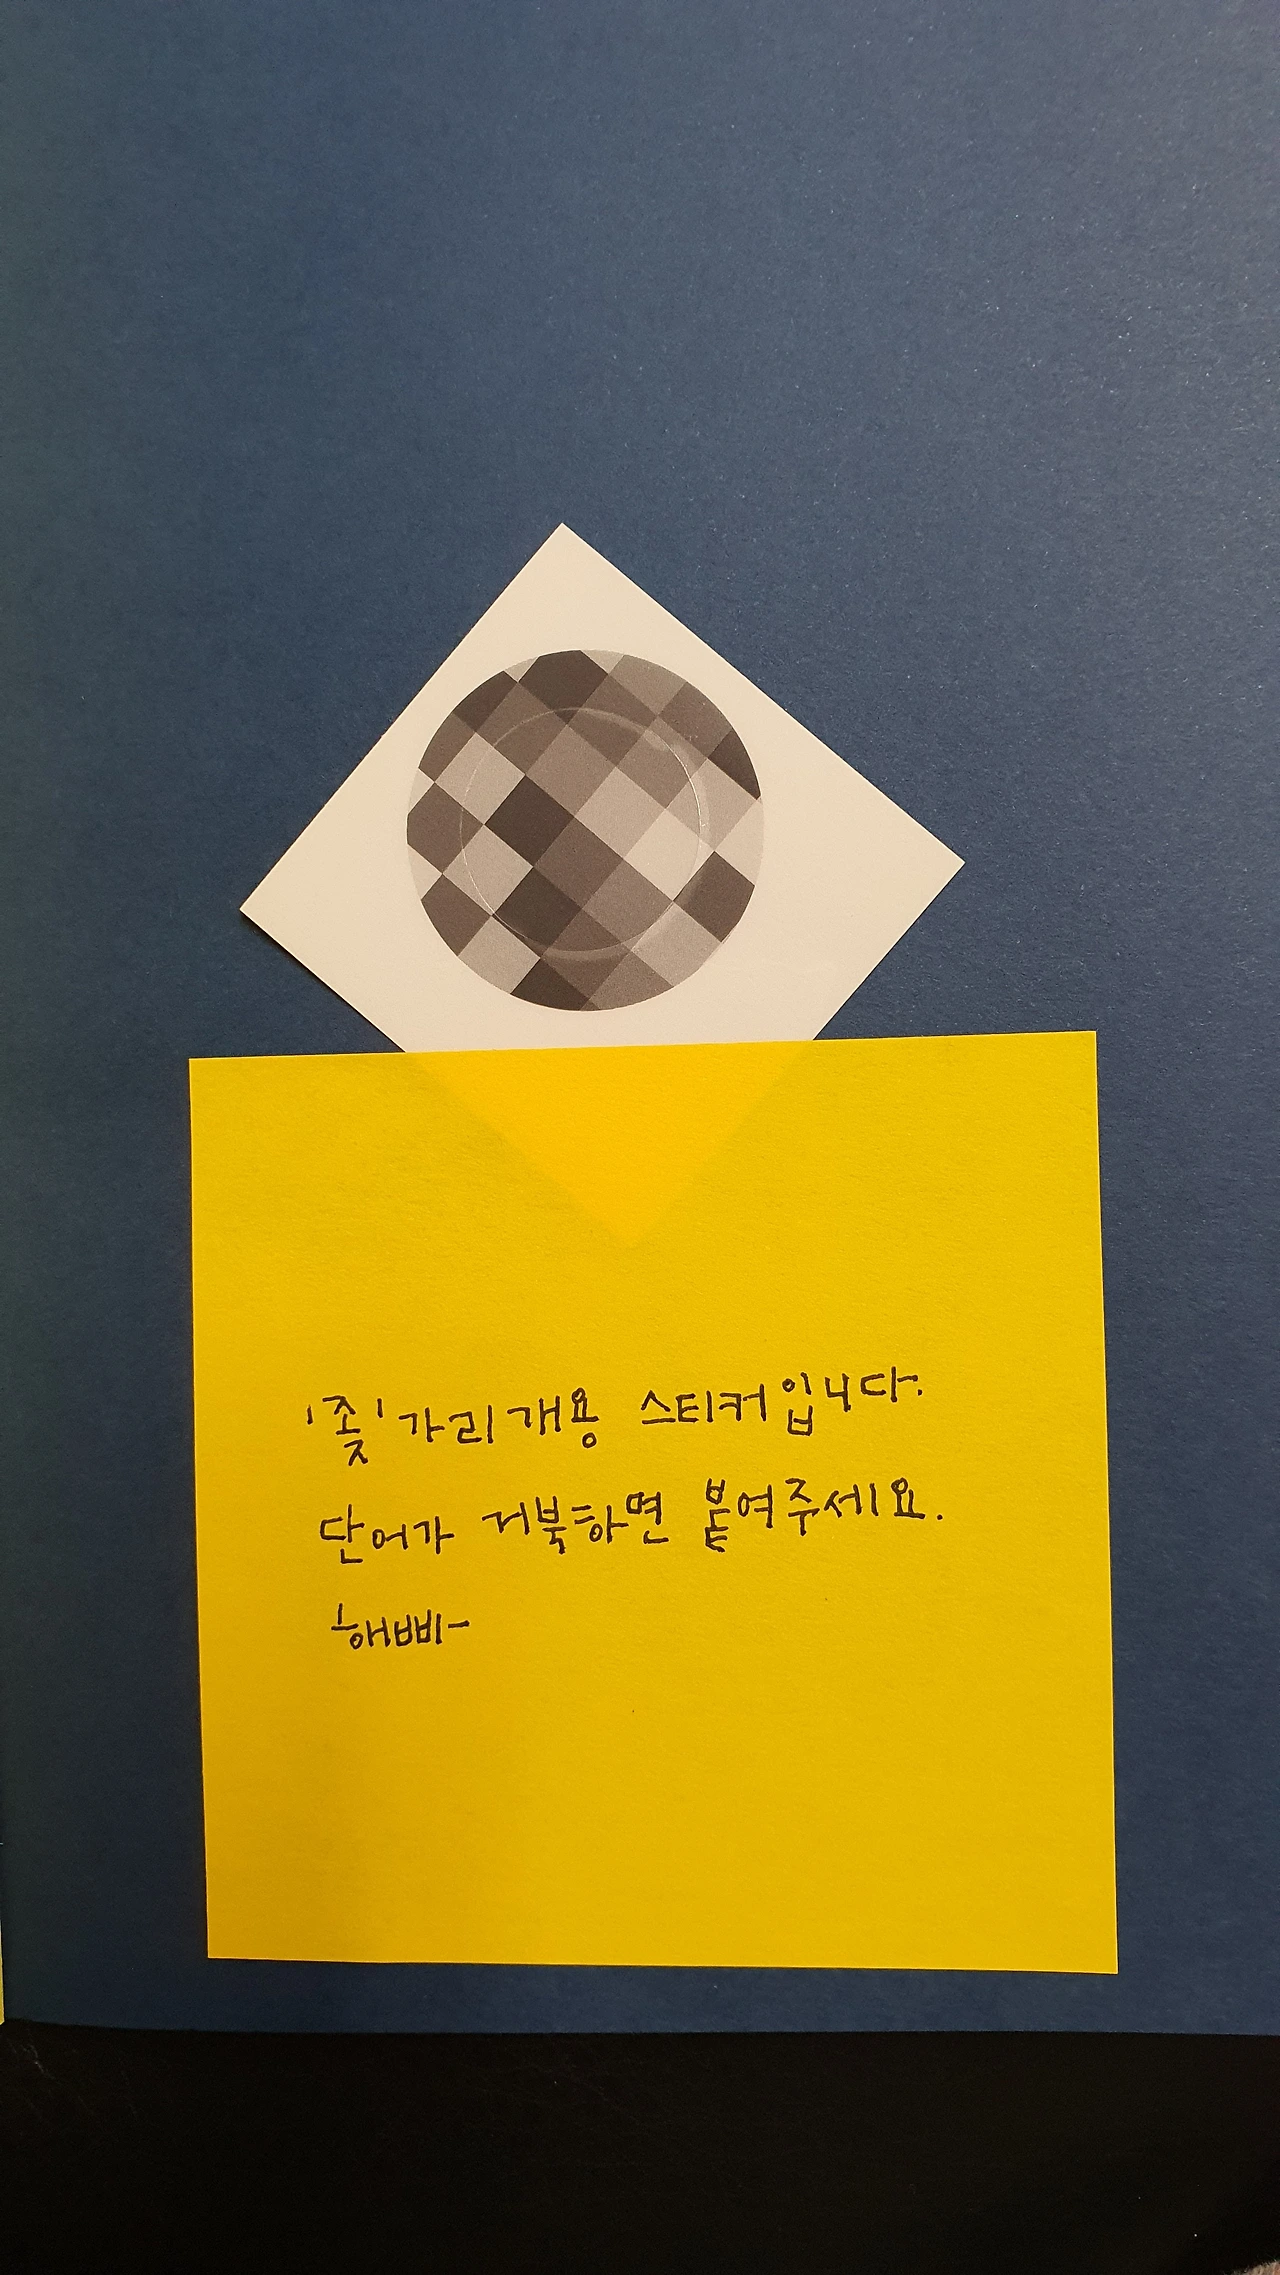 '좆' 가리개용 스티커입니다.
단어가 거북하면 붙여주세요.
해삐-